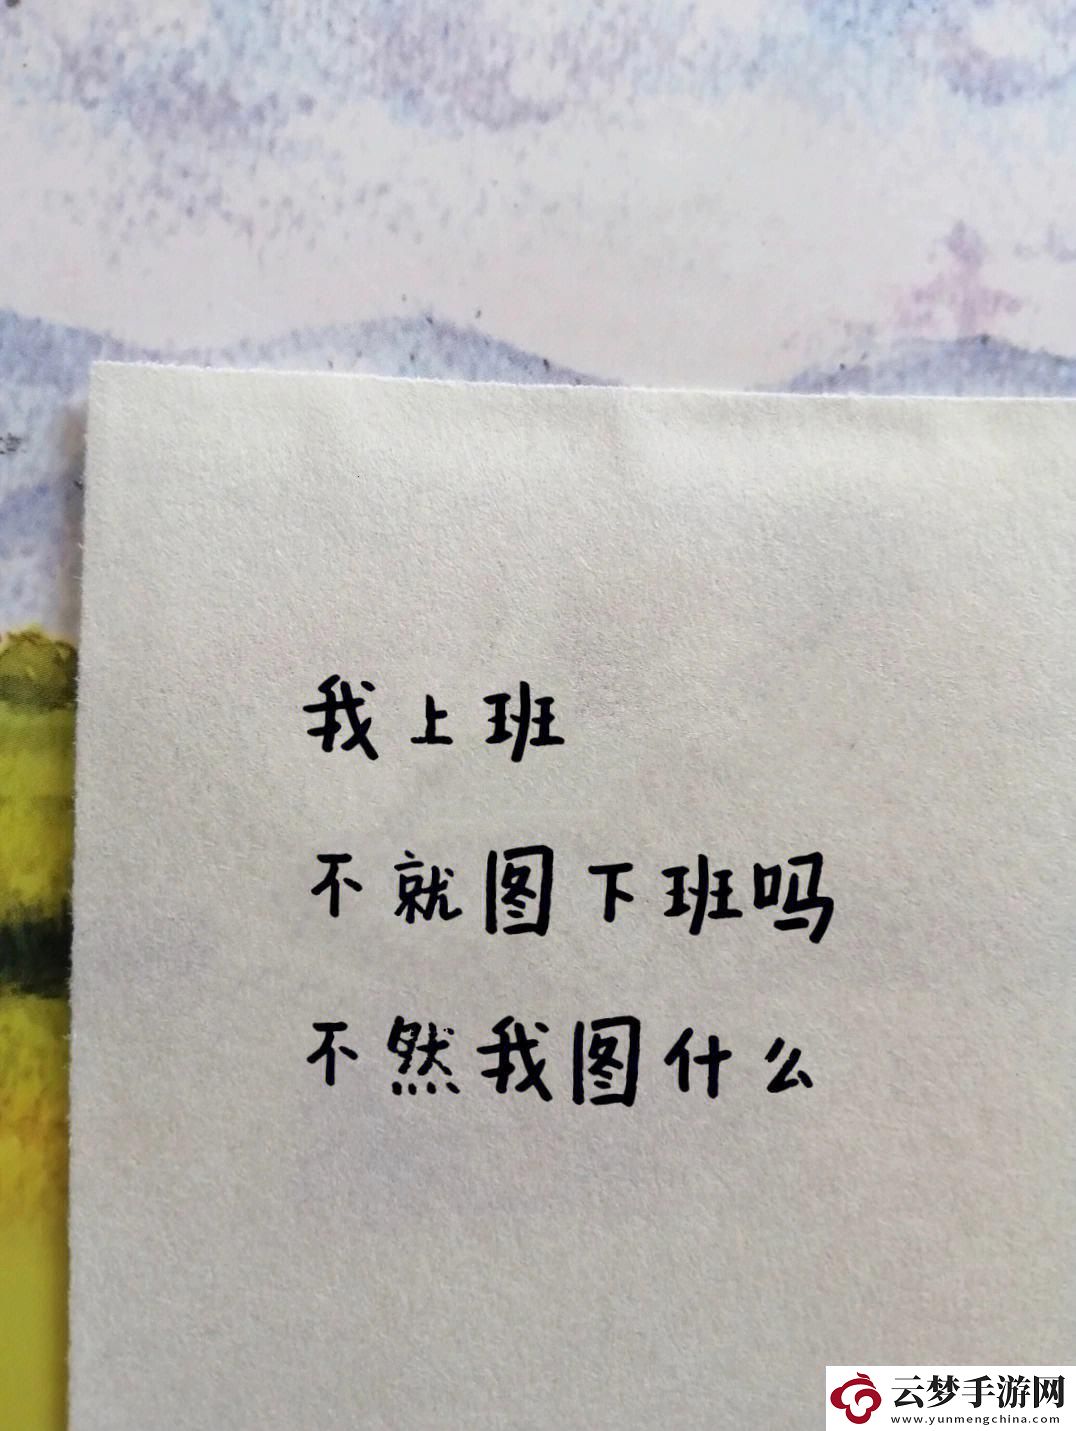 我上班
不就图下班吗
不然我图什么
云梦手游网
www.yunmengchina.com